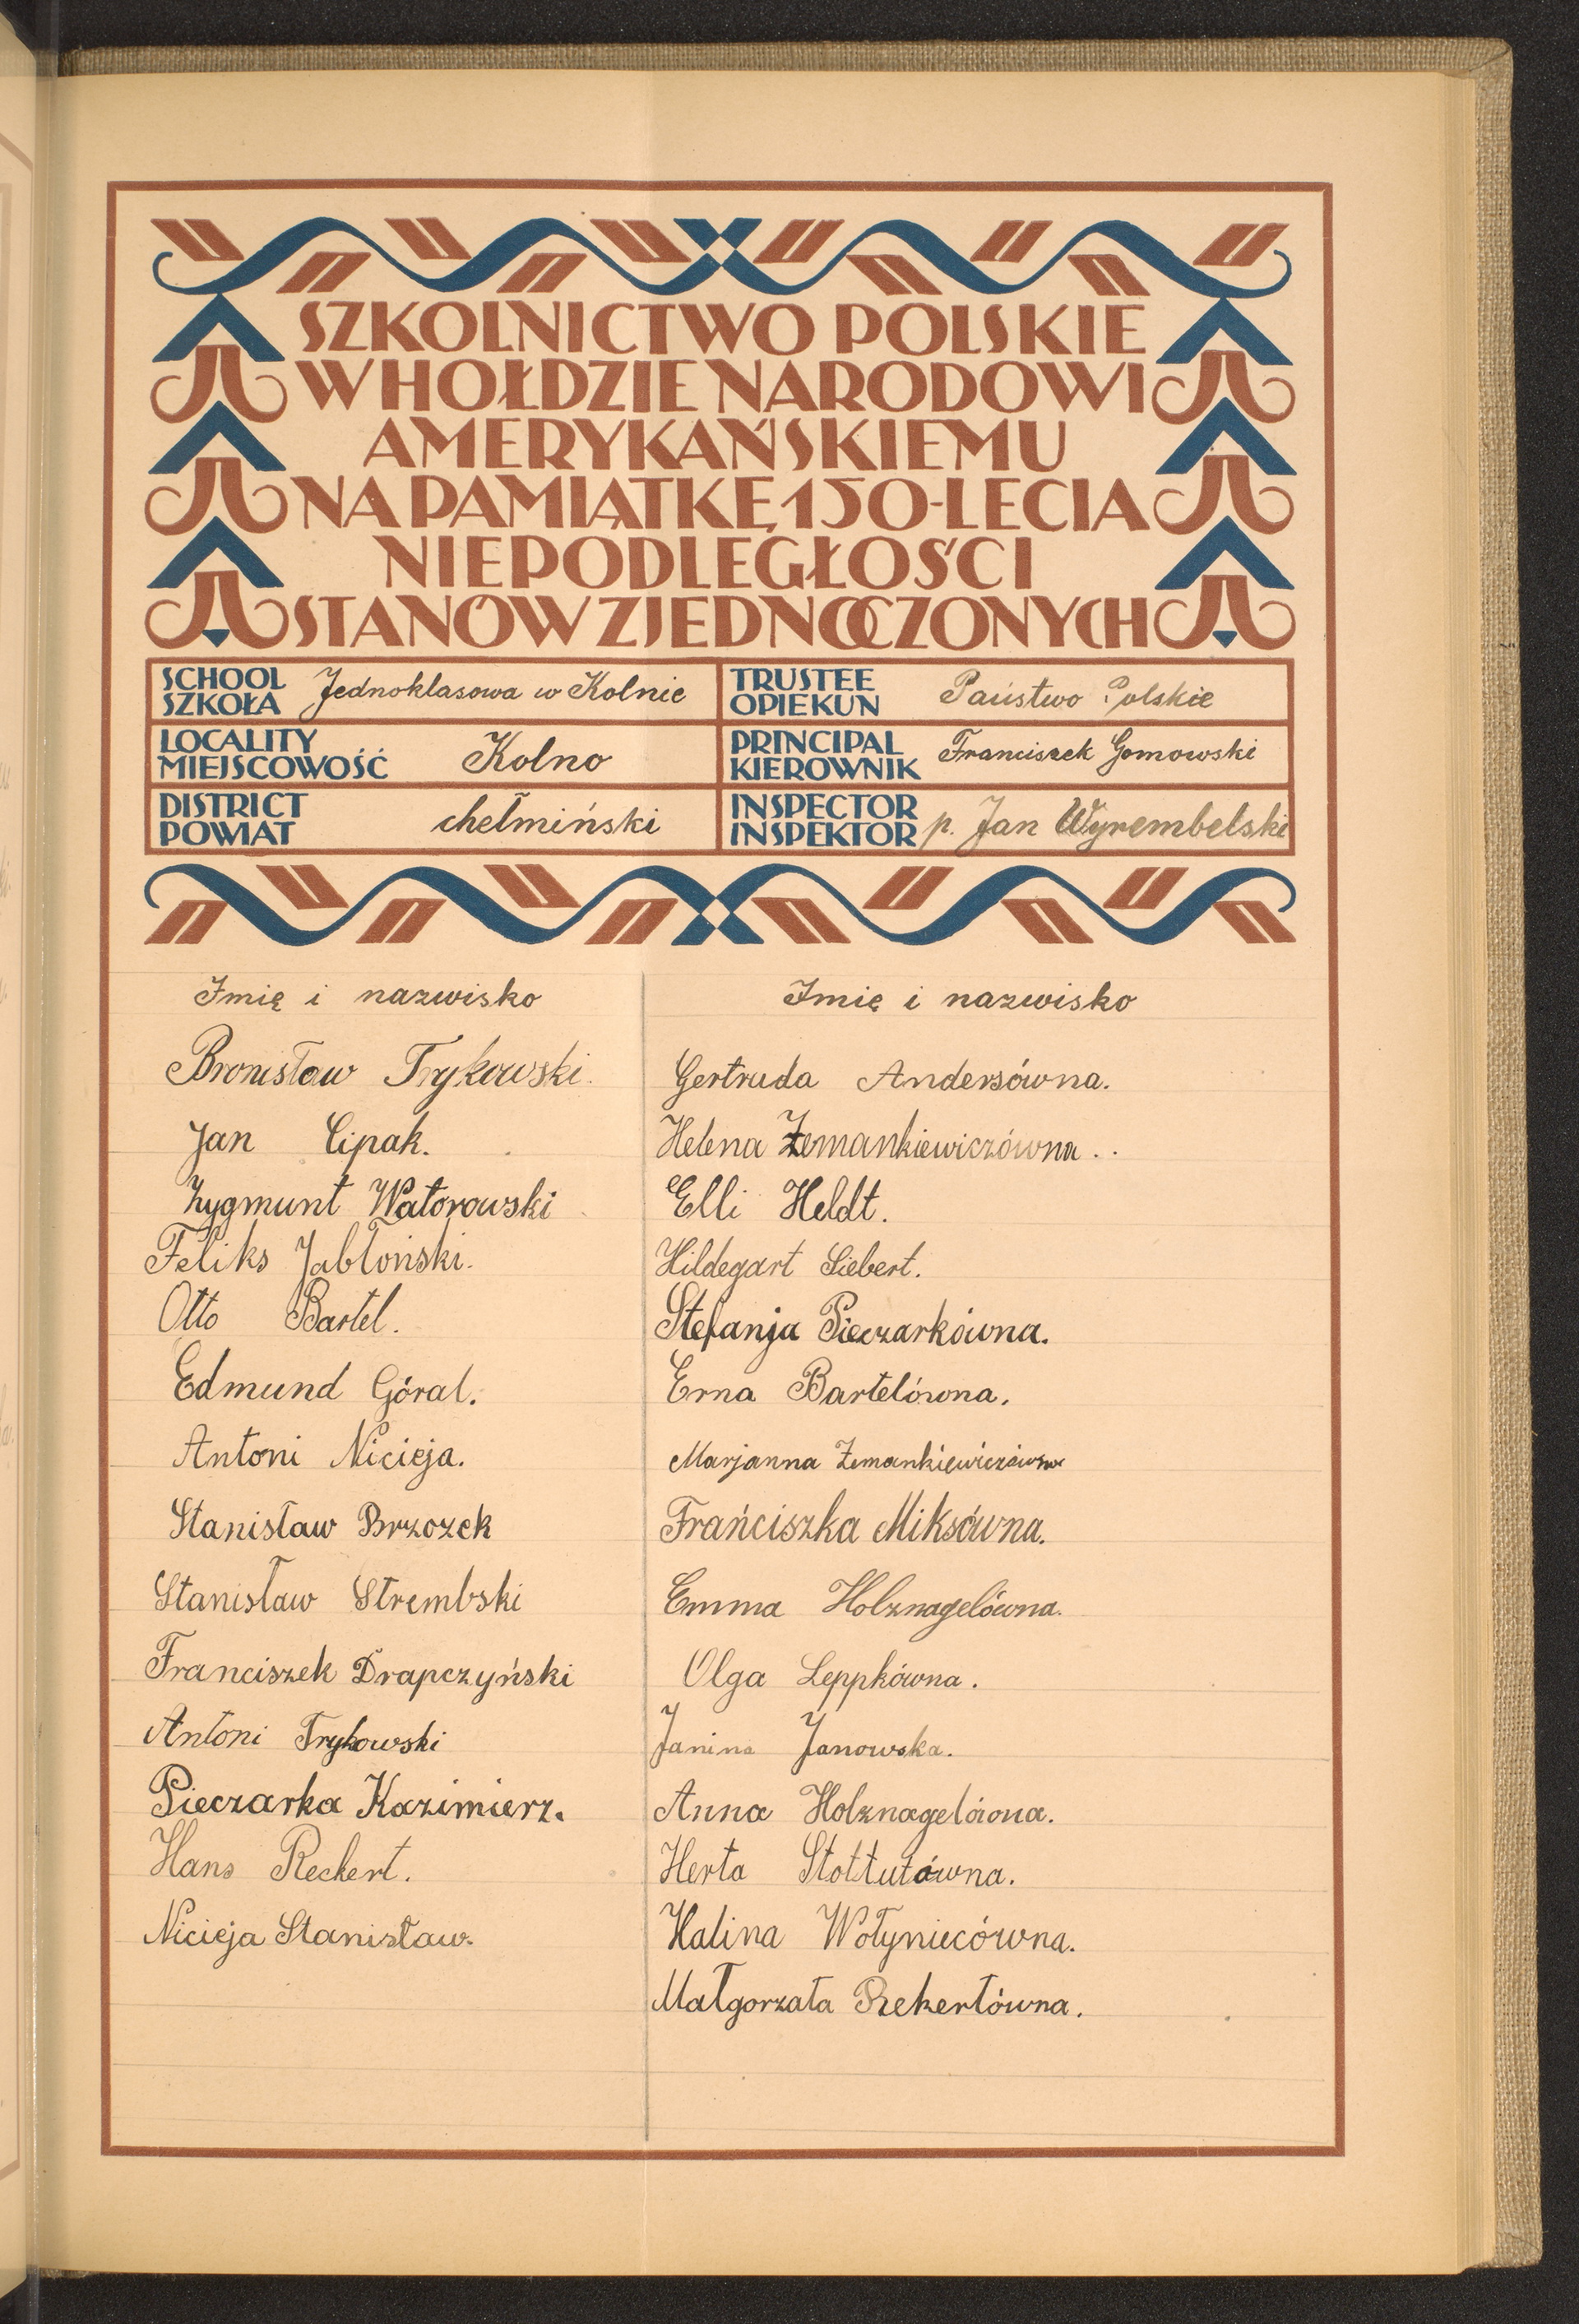 SZKOLNICTWO POLSKIE
W HOŁDZIE NARODOWI
AMERYKAŃSKIEMU
NA PAMIĄTKĘ 150-LECIA
NIEPODLEGŁOŚCI
STANÓW ZJEDNOCZONYCH
SCHOOL
SZKOŁA
Jednoklasowa w Kolnie
TRUSTEE
OPIEKUN
Państwo Polskie
LOCALITY
MIEJSCOWOŚĆ
Kolno
PRINCIPAL
KIEROWNIK
Franciszek Gomowski
DISTRICT
POWIAT
chełmiński
INSPECTOR
INSPEKTOR
p. Jan Wyrembelski
Imię i nazwisko
Bronisław Trykowski.
Jan Cipak.
Zygmunt Watorowski
Feliks Jabłoński.
Otto Bartel.
Edmund Góral.
Antoni Nicieja.
Stanisław Brzozek
Stanisław Strembski
Franciszek Drapczyński
Antoni Trykowski
Pieczarka Kazimierz.
Hans Reckert.
Nicieja Stanisław.
Imię i nazwisko
Gertruda Andersówna.
Helena Zemankiewiczówna..
Elli Heldt.
Hildegart Siebert.
Stefanja Pieczarkówna.
Erna Bartelówna.
Marjanna Zemankiewiczówna
Frańciszka Miksówna.
Emma Holznagelówna.
Olga Leppkówna.
Janina Janowska.
Anna Holznagelówna.
Herta Stottutówna.
Halina Wołyniecówna.
Małgorzata Rekertówna.